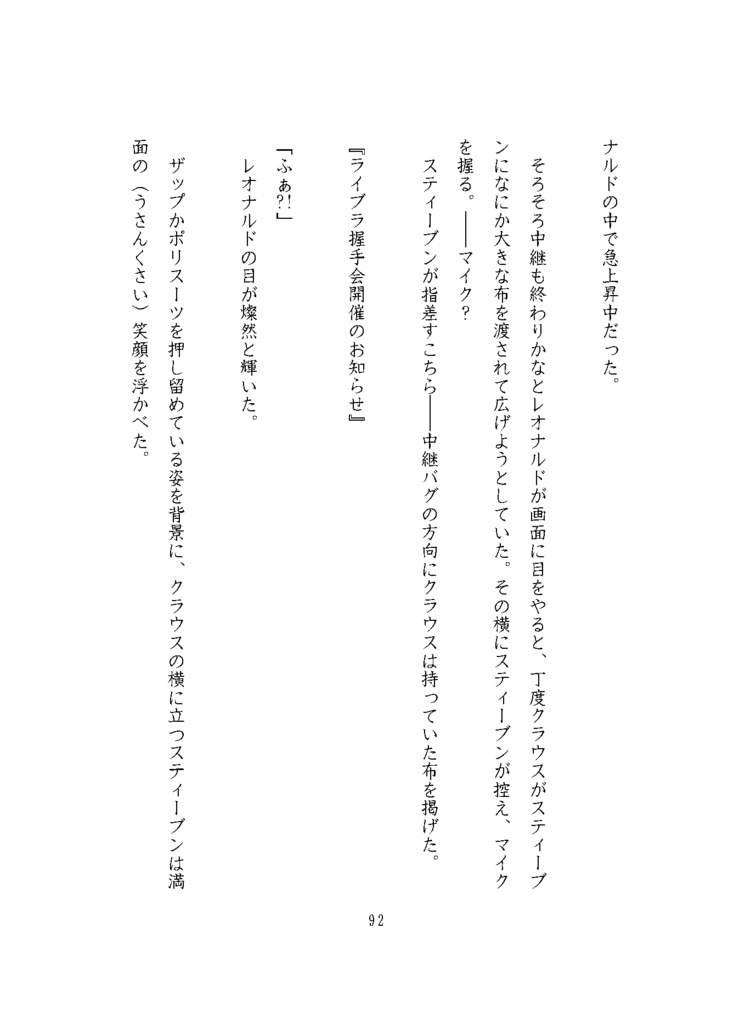 ナルドの中で急上昇中だった。
そろそろ中継も終わりかなとレオナルドが画面に目をやると、丁度クラウスがスティーブ
ンになにか大きな布を渡されて広げようとしていた。その横にスティーブンが控え、マイク
を握る。――マイク？
スティーブンが指差すこちら――中継バグの方向にクラウスは持っていた布を掲げた。
『ライブラ握手会開催のお知らせ』
「ふぁ?!」
レオナルドの目が燦然と輝いた。
ザップかポリスーツを押し留めている姿を背景に、クラウスの横に立つスティーブンは満
面の（うさんくさい）笑顔を浮かべた。
92